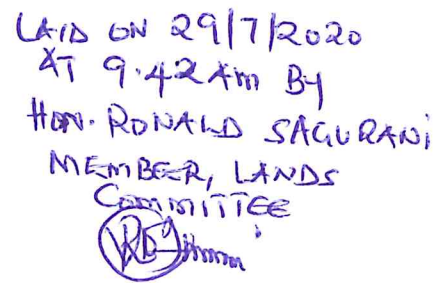 LAID ON 29/7/2020
AT 9.42 Am BY
HON. RONALD SAGURANi
MEMBER, LANDS
COMMITTEE